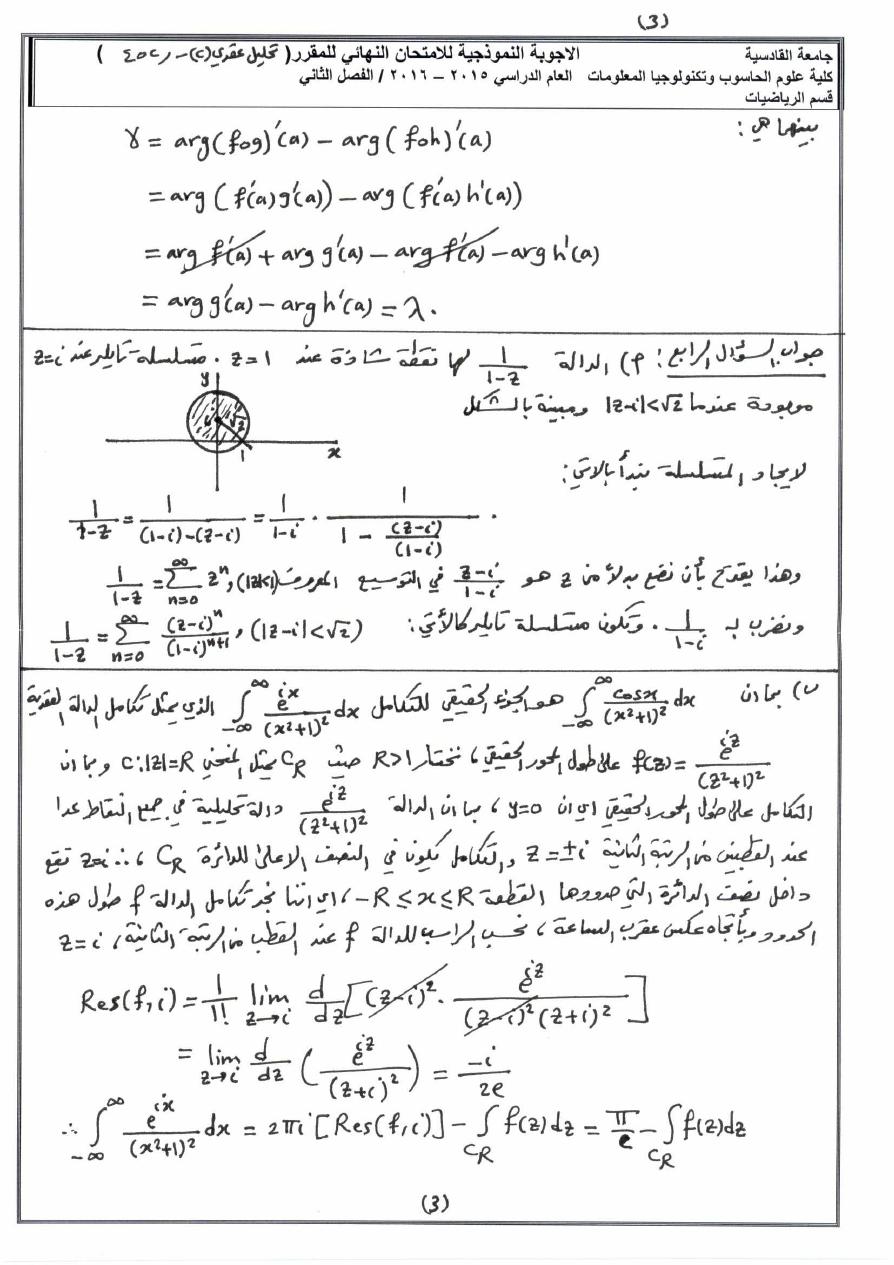 (3)
جامعة القادسية الاجوبة النموذجية للامتحان النهائي للمقرر ( تحليل عقدي(2) - ر 402 )
كلية علوم الحاسوب وتكنولوجيا المعلومات العام الدراسي ٢٠١٥ – ٢٠١٦ / الفصل الثاني
قسم الرياضيات
بينهما هي:
γ = arg(fog)'(a) - arg(foh)'(a)
= arg (f'(a)g'(a)) - arg (f'(a)h'(a))
= arg f'(a) + arg g'(a) - arg f'(a) - arg h'(a)
= arg g'(a) - arg h'(a) = λ.
جواب السؤال الرابع: م) الدالة 1/(1-z) لها نقطة شاذة عند z=1 . متسلسلة تايلر عند z=i
موجودة عندما |z-i|<√2 ومبينة بالشكل
y
√2
i
1
x
لايجاد المتسلسلة نبدأ بالاتي:
1/(1-z) = 1/((1-i)-(z-i)) = 1/(1-i) · 1/(1 - (z-i)/(1-i)) .
وهذا يقترح بأن نضع بدلاً من z هو (z-i)/(1-i) في التوسيع المعروف 1/(1-z) = ∑_{n=0}^{∞} z^n , (|z|<1)
ونضرب بـ 1/(1-i) . وتكون متسلسلة تايلر كالأتي: 1/(1-z) = ∑_{n=0}^{∞} (z-i)^n/(1-i)^{n+1} , (|z-i|<√2)
ب) بما ان ∫_{-∞}^{∞} cosx/(x²+1)² dx هو الجزء الحقيقي للتكامل ∫_{-∞}^{∞} e^{ix}/(x²+1)² dx الذي يمثل تكامل الدالة العقدية
f(z) = e^{iz}/(z²+1)² على طول المحور الحقيقي، نختار R>1 حيث C_R يمثل المنحني C:|z|=R وبما ان
التكامل على طول المحور الحقيقي اي ان y=0 ، بما ان الدالة e^{iz}/(z²+1)² دالة تحليلية في جميع النقاط عدا
عند القطبين من الرتبة الثانية z=±i والتكامل يكون في النصف الاعلى للدائرة C_R ، ∴ z=i تقع
داخل نصف الدائرة التي حدودها القطعة -R ≤ x ≤ R ، اي اننا نجد تكامل الدالة f طول هذه
الحدود وبأتجاه عكس عقرب الساعة، نحسب الراسب للدالة f عند القطب من الرتبة الثانية، z=i
Res(f,i) = 1/1! lim_{z→i} d/dz [(z-i)² · e^{iz}/((z-i)²(z+i)²)]
= lim_{z→i} d/dz (e^{iz}/(z+i)²) = -i/2e
∴ ∫_{-∞}^{∞} e^{ix}/(x²+1)² dx = 2πi [Res(f,i)] - ∫_{C_R} f(z)dz = π/e - ∫_{C_R} f(z)dz
(3)